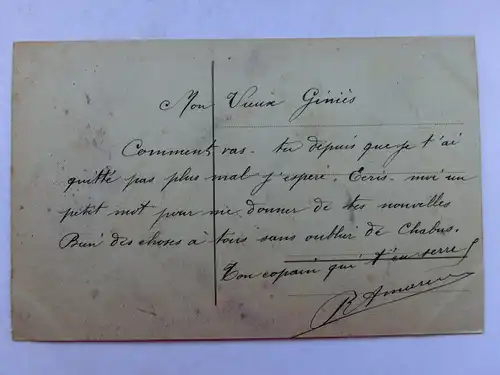 Mon Vieux Giniès
Comment vas-tu depuis que je t'ai
quitté pas plus mal j'espère. Ecris-moi un
petit mot pour me donner de tes nouvelles
Bien des choses à tous sans oublier de Chabus.
Ton copain qui t'en serre 5
R Amore